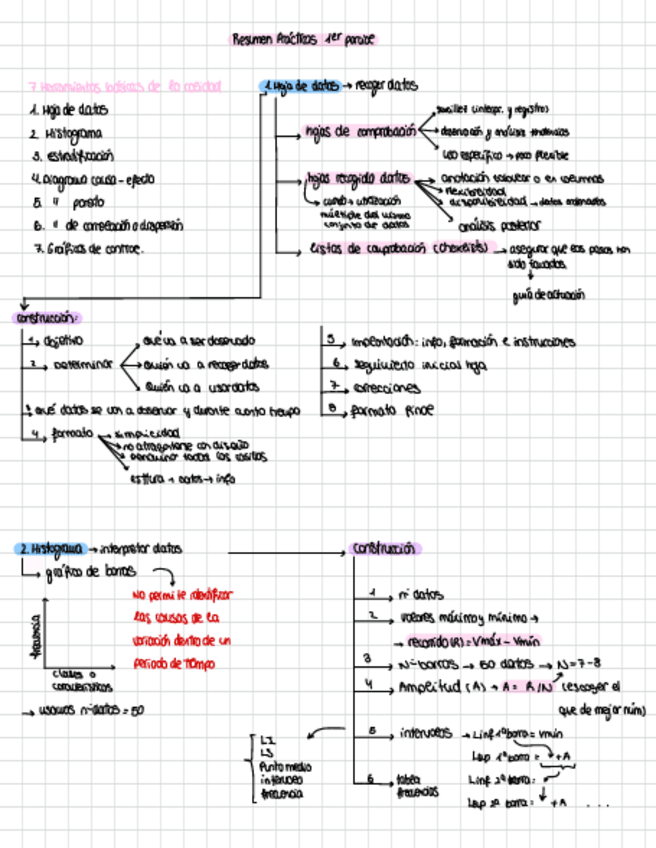 Resumen Prácticos 1er parcial
7 Herramientas básicas de la calidad
1. Hoja de datos
2. Histograma
3. estratificación
4. Diagrama causa-efecto
5. " pareto
6. " de correlación o dispersión
7. Gráficos de control.
1. Hoja de datos → recoger datos
hojas de comprobación
sencillez (interpr. y registro)
observación y análisis tendencias
uso específico → poco flexible
hojas recogida datos
cuando → utilización
múltiple del mismo
conjunto de datos
anotación en columnas
flexibilidad
disponibilidad → datos ordenados
análisis posterior
listas de comprobación (checklists) → asegurar que los pasos han
sido tomados
guía de actuación
construcción:
1. objetivo
2. Determinar
qué va a ser observado
quién va a recoger datos
quién va a usar datos
3. qué datos se van a observar y durante cuanto tiempo
4. formato
simplicidad
no atragantarse con diseño
todas las casillas
datos → info
5. implantación: info, formación e instrucciones
6. seguimiento inicial hoja
7. correcciones
8. formato final
2. Histograma → interpretar datos
gráfico de barras
frecuencia
clases o
características
→ usamos nº datos = 50
No permite identificar
las causas de la
variación dentro de un
periodo de tiempo
construcción
1 nº datos
2 valores máximo y mínimo →
→ recorrido (R) = Vmáx - Vmín
3 Nº barras → 50 datos → N = 7-8
4 Amplitud (A) → A = R/N (escoger el
que de mejor núm)
5 intervalos → Linf 1ª barra = Vmin
Lsup 1ª barra = +A
Linf 2ª barra =
Lsup 2ª barra = +A ...
6 tabla
frecuencias
LI
LS
Punto medio
intervalo
frecuencia